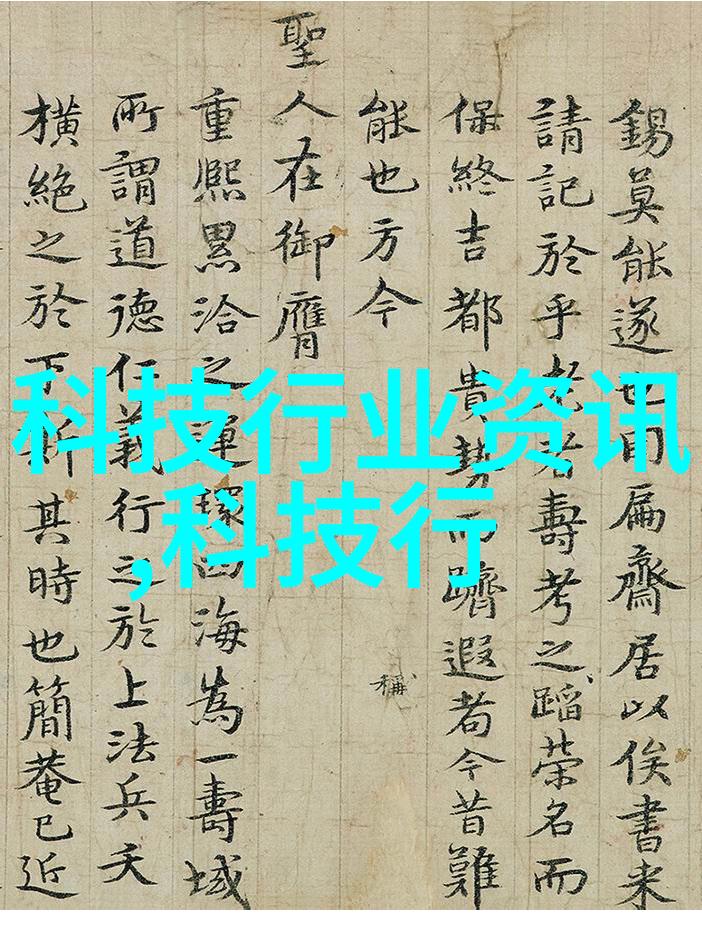 錫莫能遂也用扁齋居以俟書来
請記於乎老者壽考之蹈榮名而
保終吉都貴勢而躋遐耇今昔難
能也方今
稱
聖人在御膺
重熙累洽之運環四海為一壽域
所謂道德仁義行之於上法兵夭
橫絕之於下斯其時也簡菴已近
科技行业资讯
,科技行